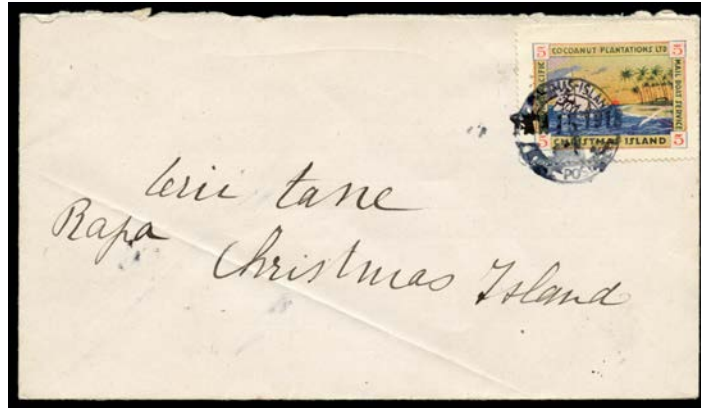 5 COCOANUT PLANTATIONS LTD 5
PACIFIC
MAIL BOAT SERVICE
5 CHRISTMAS ISLAND 5
tane
Rapa Christmas Island